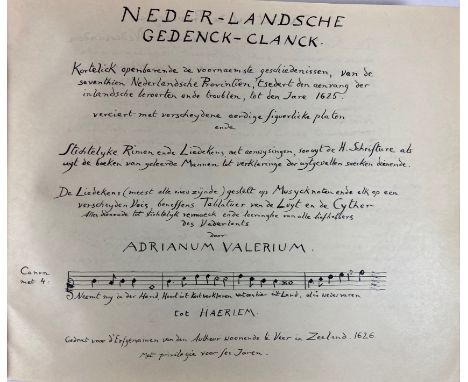 NEDER-LANDSCHE
GEDENCK-CLANCK.
Kortelick openbarende de voornaemste geschiedenissen, van de
seventhien Nederlandsche Provintien, 'tsedert den aenvang der
inlandsche beroerten ende troublen, tot den Jare 1625.
verciert met verscheydene aerdige figuerlike platen
ende
Stichtelyke Rimen ende Liedekens met aenwysingen, soo uyt de H. Schrifture als
uyt de boeken van geleerde Mannen tot verklaringe der uytgevallen saecken dienende.
De Liedekens (meest alle nieu zijnde) gestelt op Musycknoten ende elk op een
verscheyden Vois, beneffens Tablatuer van de Luyt ende Cyther
Alles dienende tot stichtelyk vermaeck ende leeringhe van alle Lief-hebbers
des Vaderlants
door
ADRIANUM VALERIUM.
Canon
met 4.
Neemt my in der Hand, Hout int Land, als
tot HAERLEM.
Gedruct voor d'Erfgenamen van den Autheur woonende te Veer in Zeeland. 1626
Met privilegie voor ses Jaren.